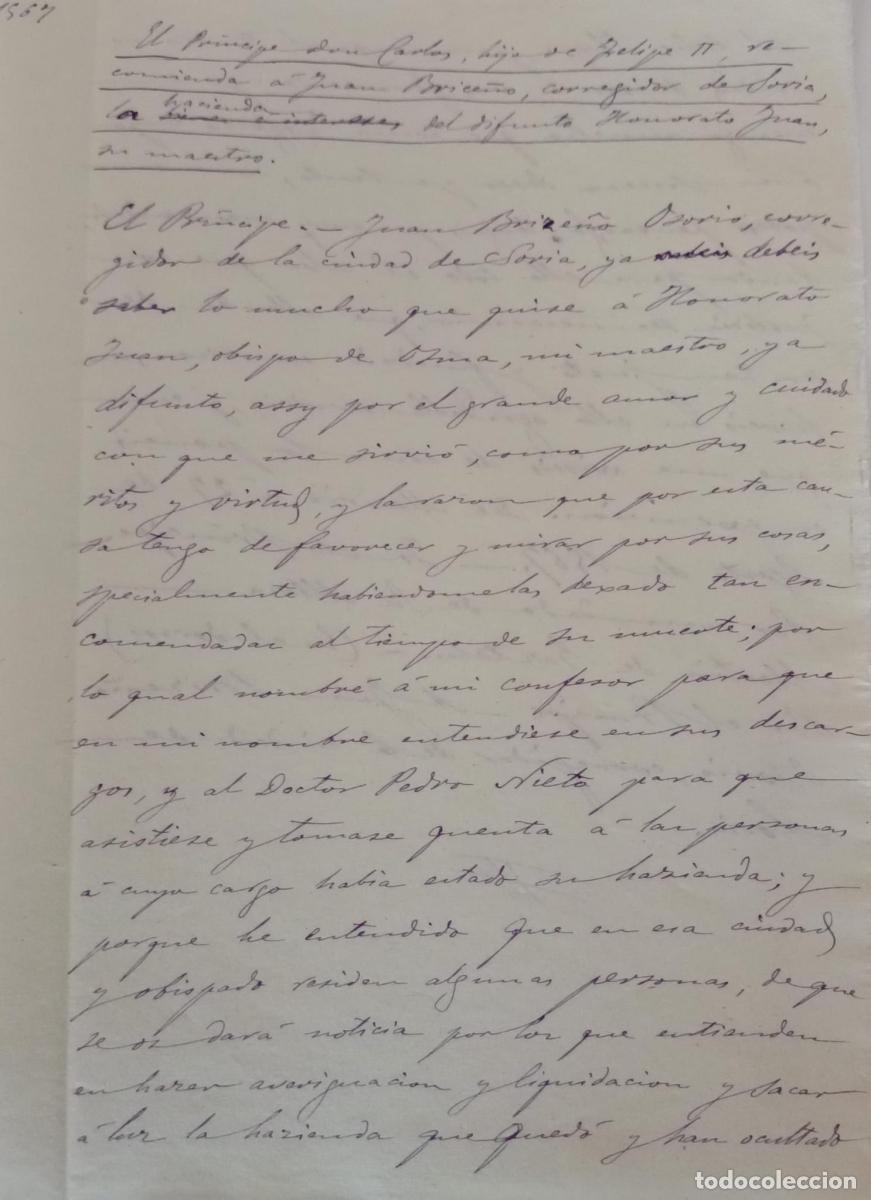 1567
El Príncipe don Carlos, hijo de Felipe II, re-
comienda á Juan Briceño, corregidor de Soria,
la hacienda del difunto Honorato Juan,
su maestro.
El Príncipe. - Juan Brizeño Osorio, corre-
gidor de la ciudad de Soria, ya debeis
saber lo mucho que quise á Honorato
Juan, obispo de Osma, mi maestro, ya
difunto, assy por el grande amor y cuidado
con que me sirvió, como por sus mé-
ritos y virtud, y la razon que por esta cau-
sa tengo de favorecer y mirar por sus cosas,
specialmente habiendomelas dexado tan en-
comendadas al tiempo de su muerte; por
lo qual nombré á mi confesor para que
en mi nombre entendiese en sus descar-
gos, y al Doctor Pedro Nieto para que
asistiese y tomase quenta á las personas
á cuyo cargo habia estado su hazienda; y
porque he entendido que en esa ciudad
y obispado residen algunas personas, de que
se os dará noticia por los que entienden
en hazer averiguacion y liquidacion y sacar
á luz la hazienda que quedó y han ocultado
todocoleccion